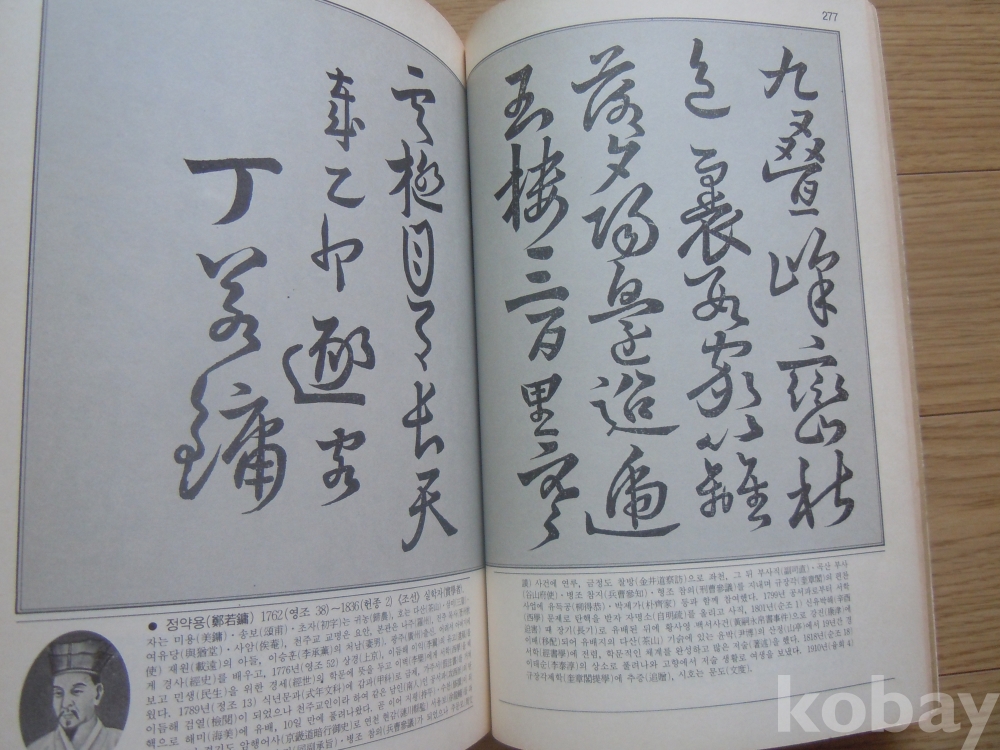 277
九疊峰巒秋
色裏數家籬
落夕陽邊迢遞
玉樓三百里寥
雲極目了長天
歲乙卯 逐客
丁若鏞
● 정약용(鄭若鏞) 1762(영조 38)~1836(헌종 2) (조선) 실학자(實學者)
자는 미용(美鏞)·송보(頌甫)·초자(初字)는 귀농(歸農), 호는 다산(茶山)
여유당(與猶堂)·사암(俟菴), 천주교 교명은 요안, 본관은 나주
使) 재원(載遠)의 아들, 이승훈(李承薰)의 처남(妻男)
게 경사(經史)를 배우고, 1776년(영조 52) 상경(上京)
보고 민생(民生)을 위한 경세(經世)의 학문에 뜻을 두고
왔다. 1789년(정조 13) 식년문과(式年文科)에 갑과(甲科)로 급제
이듬해 검열(檢閱)이 되었으나 천주교인이라 하여 같은 남인(南人)
핵으로 해미(海美)에 유배, 10일 만에 풀려나왔다.
議) 사건에 연루, 금정도 찰방(金井道察訪)으로 좌천, 그 뒤 부사직(副司直)·곡산 부사
(谷山府使)·병조 참지(兵曹參知)·형조 참의(刑曹參議)를 지내며 규장각(奎章閣)의 편찬
사업에 유득공(柳得恭)·박제가(朴齊家) 등과 함께 참여했다. 1799년 공서파로부터 서학
(西學) 문제로 탄핵을 받자 자명소(自明疏)를 올리고 사직, 1801년(순조 1) 신유박해(辛酉
迫害) 때 장기(長기)로 유배된 뒤에 황사영 백서사건(黃嗣永帛書事件)으로 강진(康津)에
이배(移配)되어 유배지의 다산(茶山) 기슭에 있는 윤박(尹博)의 산정(山亭)에서 19년간 경
서학(經書學)에 전렴, 학문적인 체계를 완성하고 많은 저술(著述)을 했다. 1818년(순조 18)
이태순(李泰淳)의 상소로 풀려나와 고향에서 저술 생활로 여생을 보냈다. 1910년(융희 4)
규장각제학(奎章閣提學)에 추증(追贈), 시호는 문도(文度).
kobay